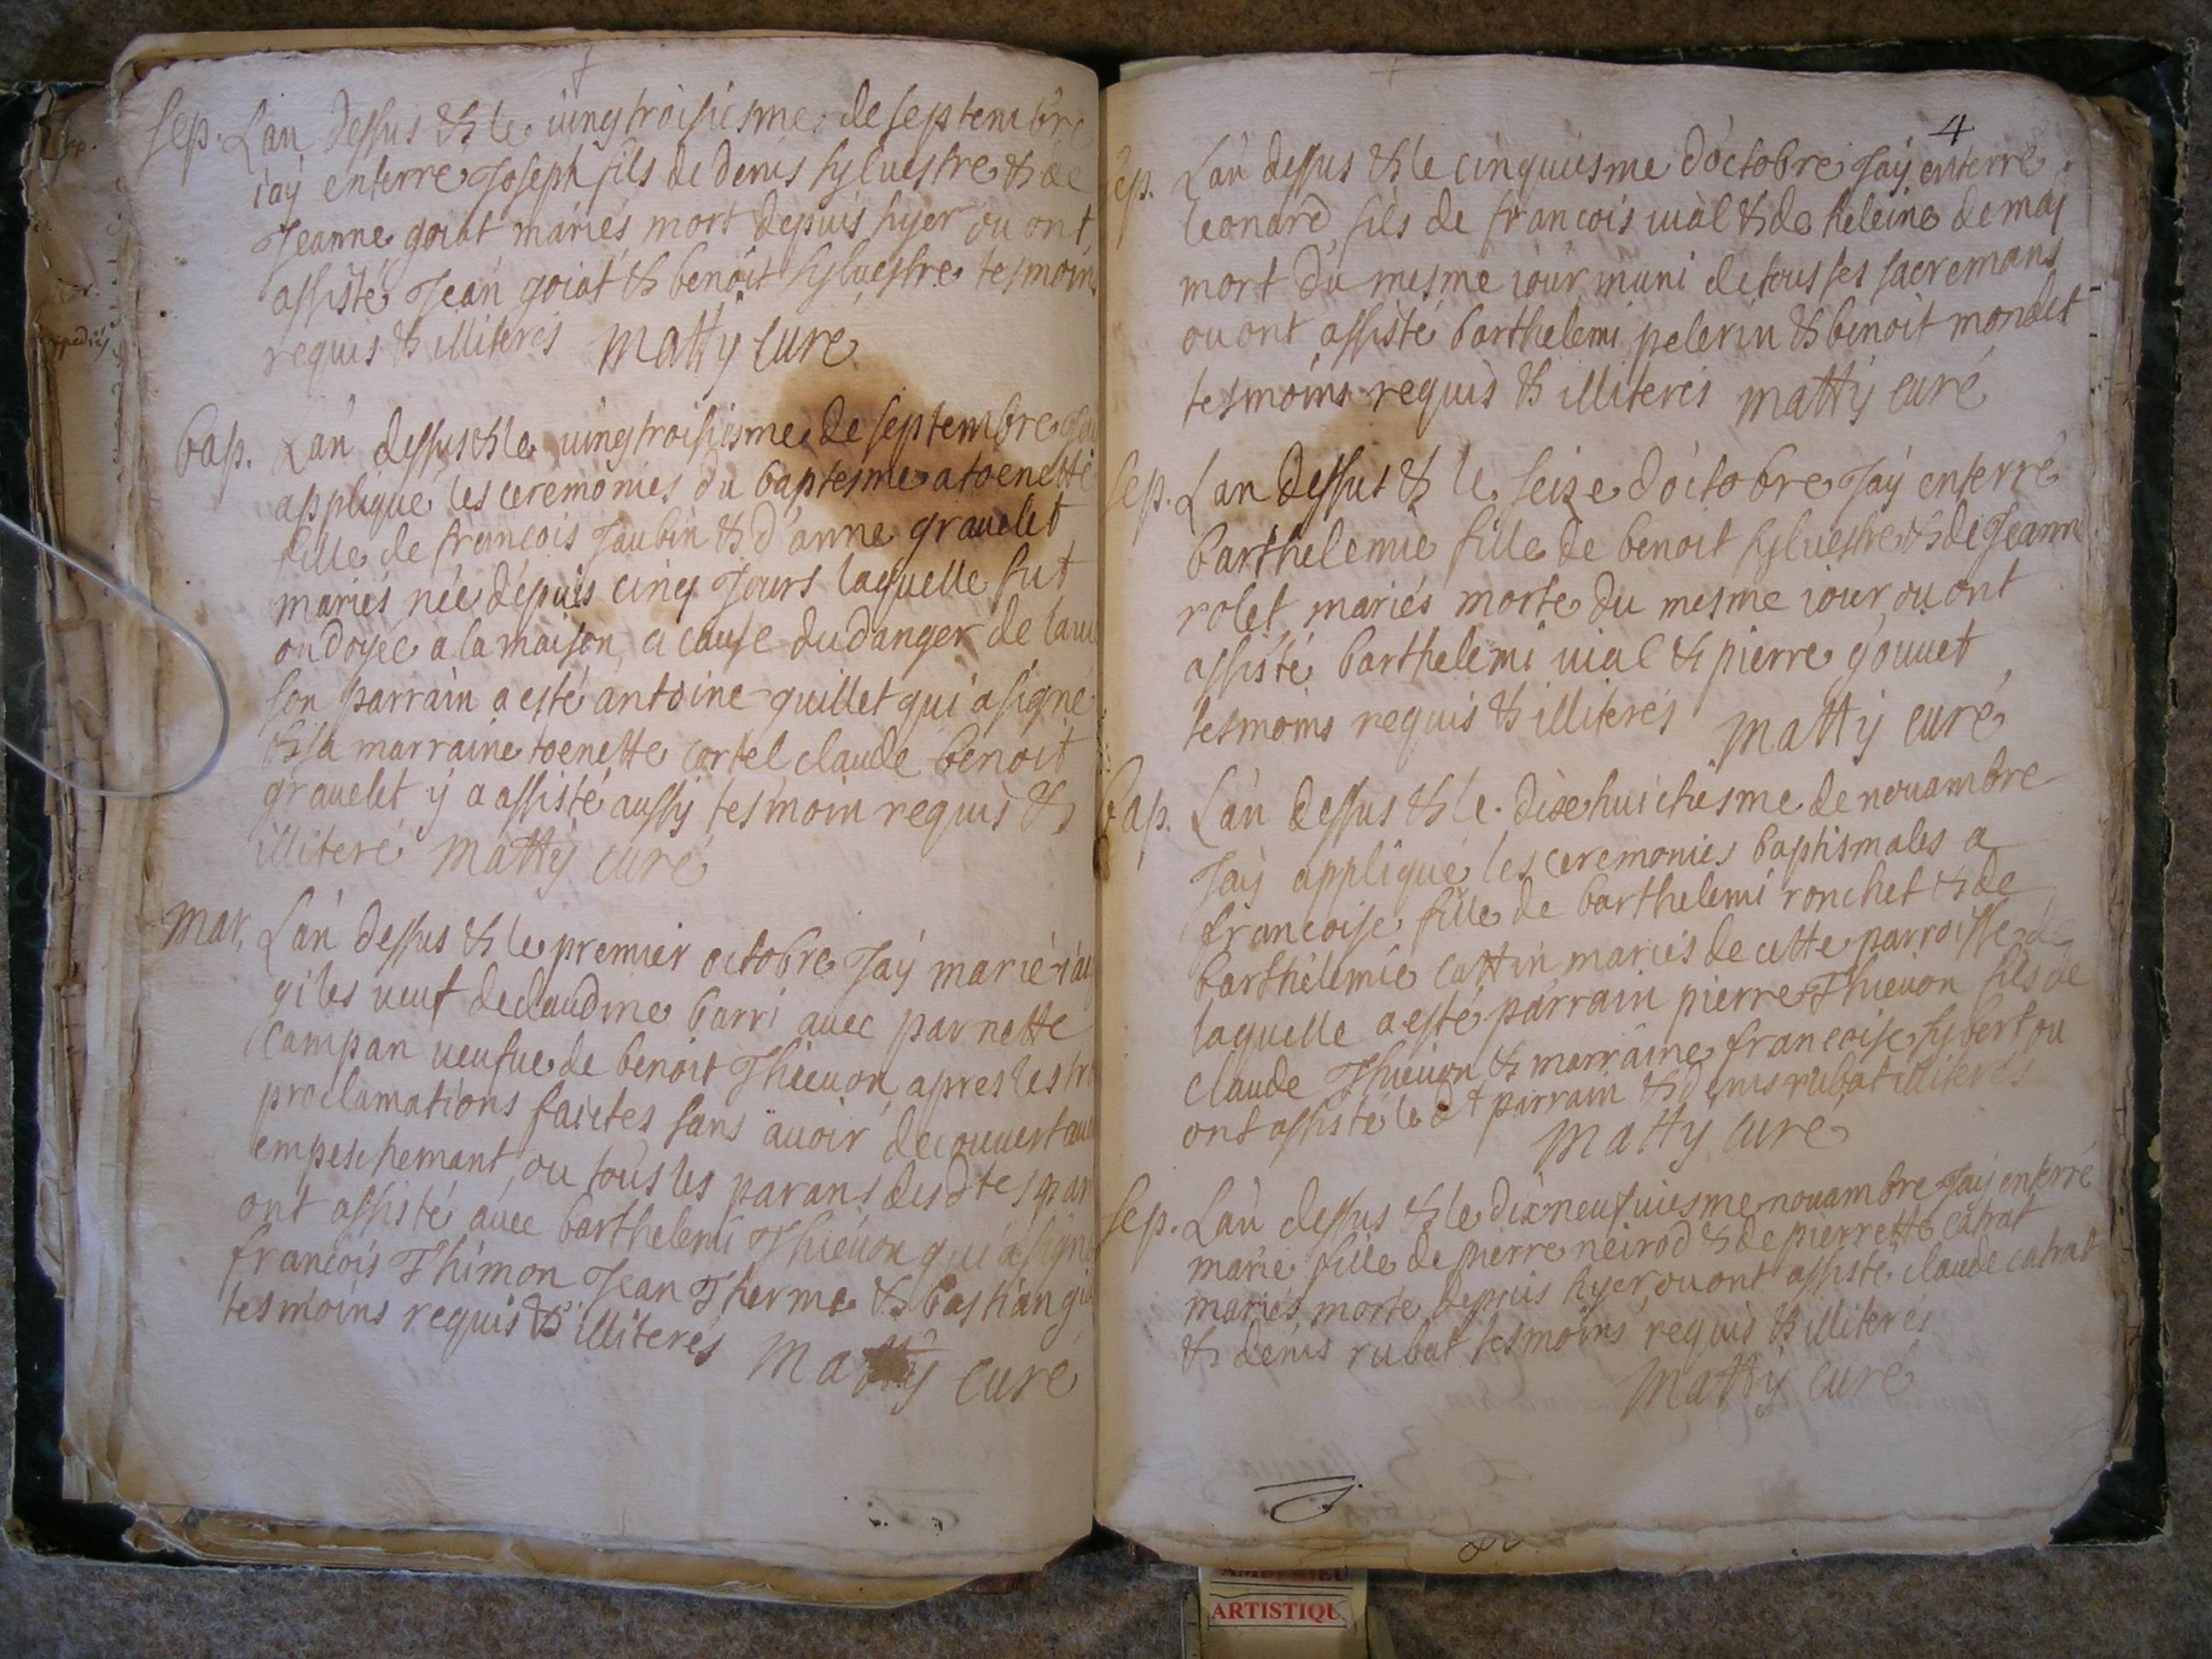 Sep. Lan dessus & le vingtroisiesme de septembre
i'ay enterre Joseph fils de denis sylvestre & de
Jeanne goiat mariés mort depuis hyer ou ont
assisté Jean goiat & benoit sylvestre tesmoins
requis & illiterés Matty curé
bap. Lan dessus & le vingtroisiesme de septembre Jay
appliqué les ceremonies du baptesme a toenette
fille de francois Jaubin & d'anne gravelet
mariés née depuis cinq Jours laquelle fut
ondoyée a la maison a cause du danger de la vie
son parrain a esté antoine quillet qui a signé
& sa marraine toenette cortel claude benoit
gravelet y a assisté aussy tesmoin requis &
illiteré Matty curé
Mar. Lan dessus & le premier octobre Jay marié
giles veuf de claudine barri avec parnette
campan veufve de benoit Thievon apres les
proclamations faictes sans avoir decouvert
empeschemant, ou tous les parans desdtes
ont assisté avec barthelemi Thievon qui a signé
francois Thimon Jean Therme & bastian
tesmoins requis & illiterés Matty curé
4
Sep. Lan dessus & le cinquiesme d'octobre Jay enterré
leonard fils de francois vial & de heleine demas
mort du mesme iour muni de tous ses sacremans
ou ont assisté barthelemi pelerin & benoit mondet
tesmoins requis & illiterés Matty curé
Sep. Lan dessus & le seize d'octobre Jay enterré
barthelemie fille de benoit sylvestre & de Jeanne
rolet mariés morte du mesme iour ou ont
assisté barthelemi vial & pierre gouvet
tesmoins requis & illiterés Matty curé
bap. Lan dessus & le dixehuictiesme de novambre
Jay appliqué les ceremonies baptismales a
francoise fille de barthelemi ronchet & de
barthelemie cattin mariés de cette parroisse de
laquelle a esté parrain pierre Thievon fils de
claude Thievon & marraine francoise hybert ou
ont assisté le dt parrain & denis rubat illiterés
Matty curé
Sep. Lan dessus & le dixneufviesme novambre Jay enterré
marie fille de pierre neirod & de pierrette catrat
mariés morte depuis hyer, ou ont assisté claude catrat
& denis rubat tesmoins requis & illiterés
Matty curé
ARTISTIQU